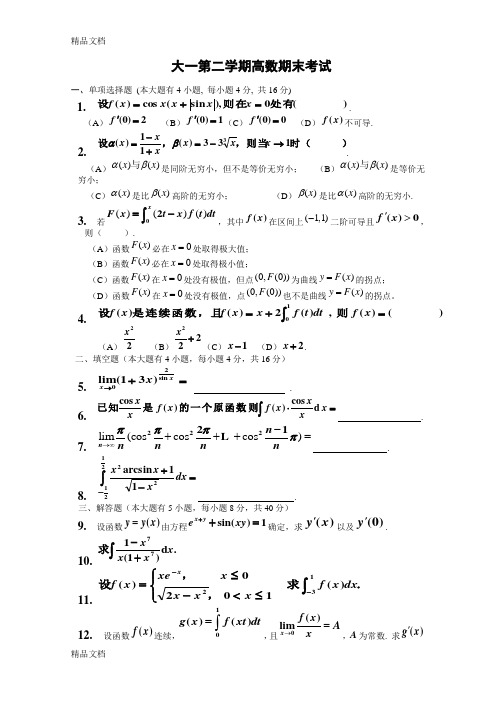 精品文档
大一第二学期高数期末考试
一、单项选择题 (本大题有 4 小题, 每小题 4 分, 共 16 分)
1. 设f(x) = cos x(x + |sin x|), 则在x = 0处有( ) .
（A）f′(0) = 2 （B）f′(0) = 1（C）f′(0) = 0 （D）f(x)不可导.
2. 设α(x) = (1−x)/(1+x)，β(x) = 3 − 3∛x，则当x → 1时（ ）.
（A）α(x)与β(x)是同阶无穷小，但不是等价无穷小； （B）α(x)与β(x)是等价无
穷小；
（C）α(x)是比β(x)高阶的无穷小； （D）β(x)是比α(x)高阶的无穷小.
3. 若 F(x) = ∫₀ˣ (2t − x)f(t)dt，其中f(x)在区间上(−1,1)二阶可导且f′(x) > 0，
则（ ）.
（A）函数F(x)必在x = 0处取得极大值；
（B）函数F(x)必在x = 0处取得极小值；
（C）函数F(x)在x = 0处没有极值，但点(0, F(0))为曲线y = F(x)的拐点；
（D）函数F(x)在x = 0处没有极值，点(0, F(0))也不是曲线y = F(x)的拐点。
4. 设f(x)是连续函数，且f(x) = x + 2∫₀¹ f(t)dt，则f(x) = ( )
（A）x²/2 （B）x²/2 + 2（C）x − 1 （D）x + 2.
二、填空题（本大题有 4 小题，每小题 4 分，共 16 分）
5. lim_{x→0}(1 + 3x)^{2/sin x} = .
6. 已知cos x/x是f(x)的一个原函数,则∫f(x)·(cos x/x)dx = .
7. lim_{n→∞} π/n (cos² π/n + cos² 2π/n + L + cos² (n−1)/n π) = .
8. ∫_{−1/2}^{1/2} (x² arcsin x + 1)/√(1 − x²) dx = .
三、解答题（本大题有 5 小题，每小题 8 分，共 40 分）
9. 设函数y = y(x)由方程e^{x+y} + sin(xy) = 1确定，求y′(x)以及y′(0).
10. 求∫(1 − x⁷)/(x(1 + x⁷))dx.
11. 设f(x) = { xe^{−x}， x ≤ 0; √(2x − x²)，0 < x ≤ 1 求∫_{−3}^{1} f(x)dx.
12. 设函数f(x)连续，g(x) = ∫₀¹ f(xt)dt，且lim_{x→0} f(x)/x = A，A 为常数. 求g′(x)
精品文档